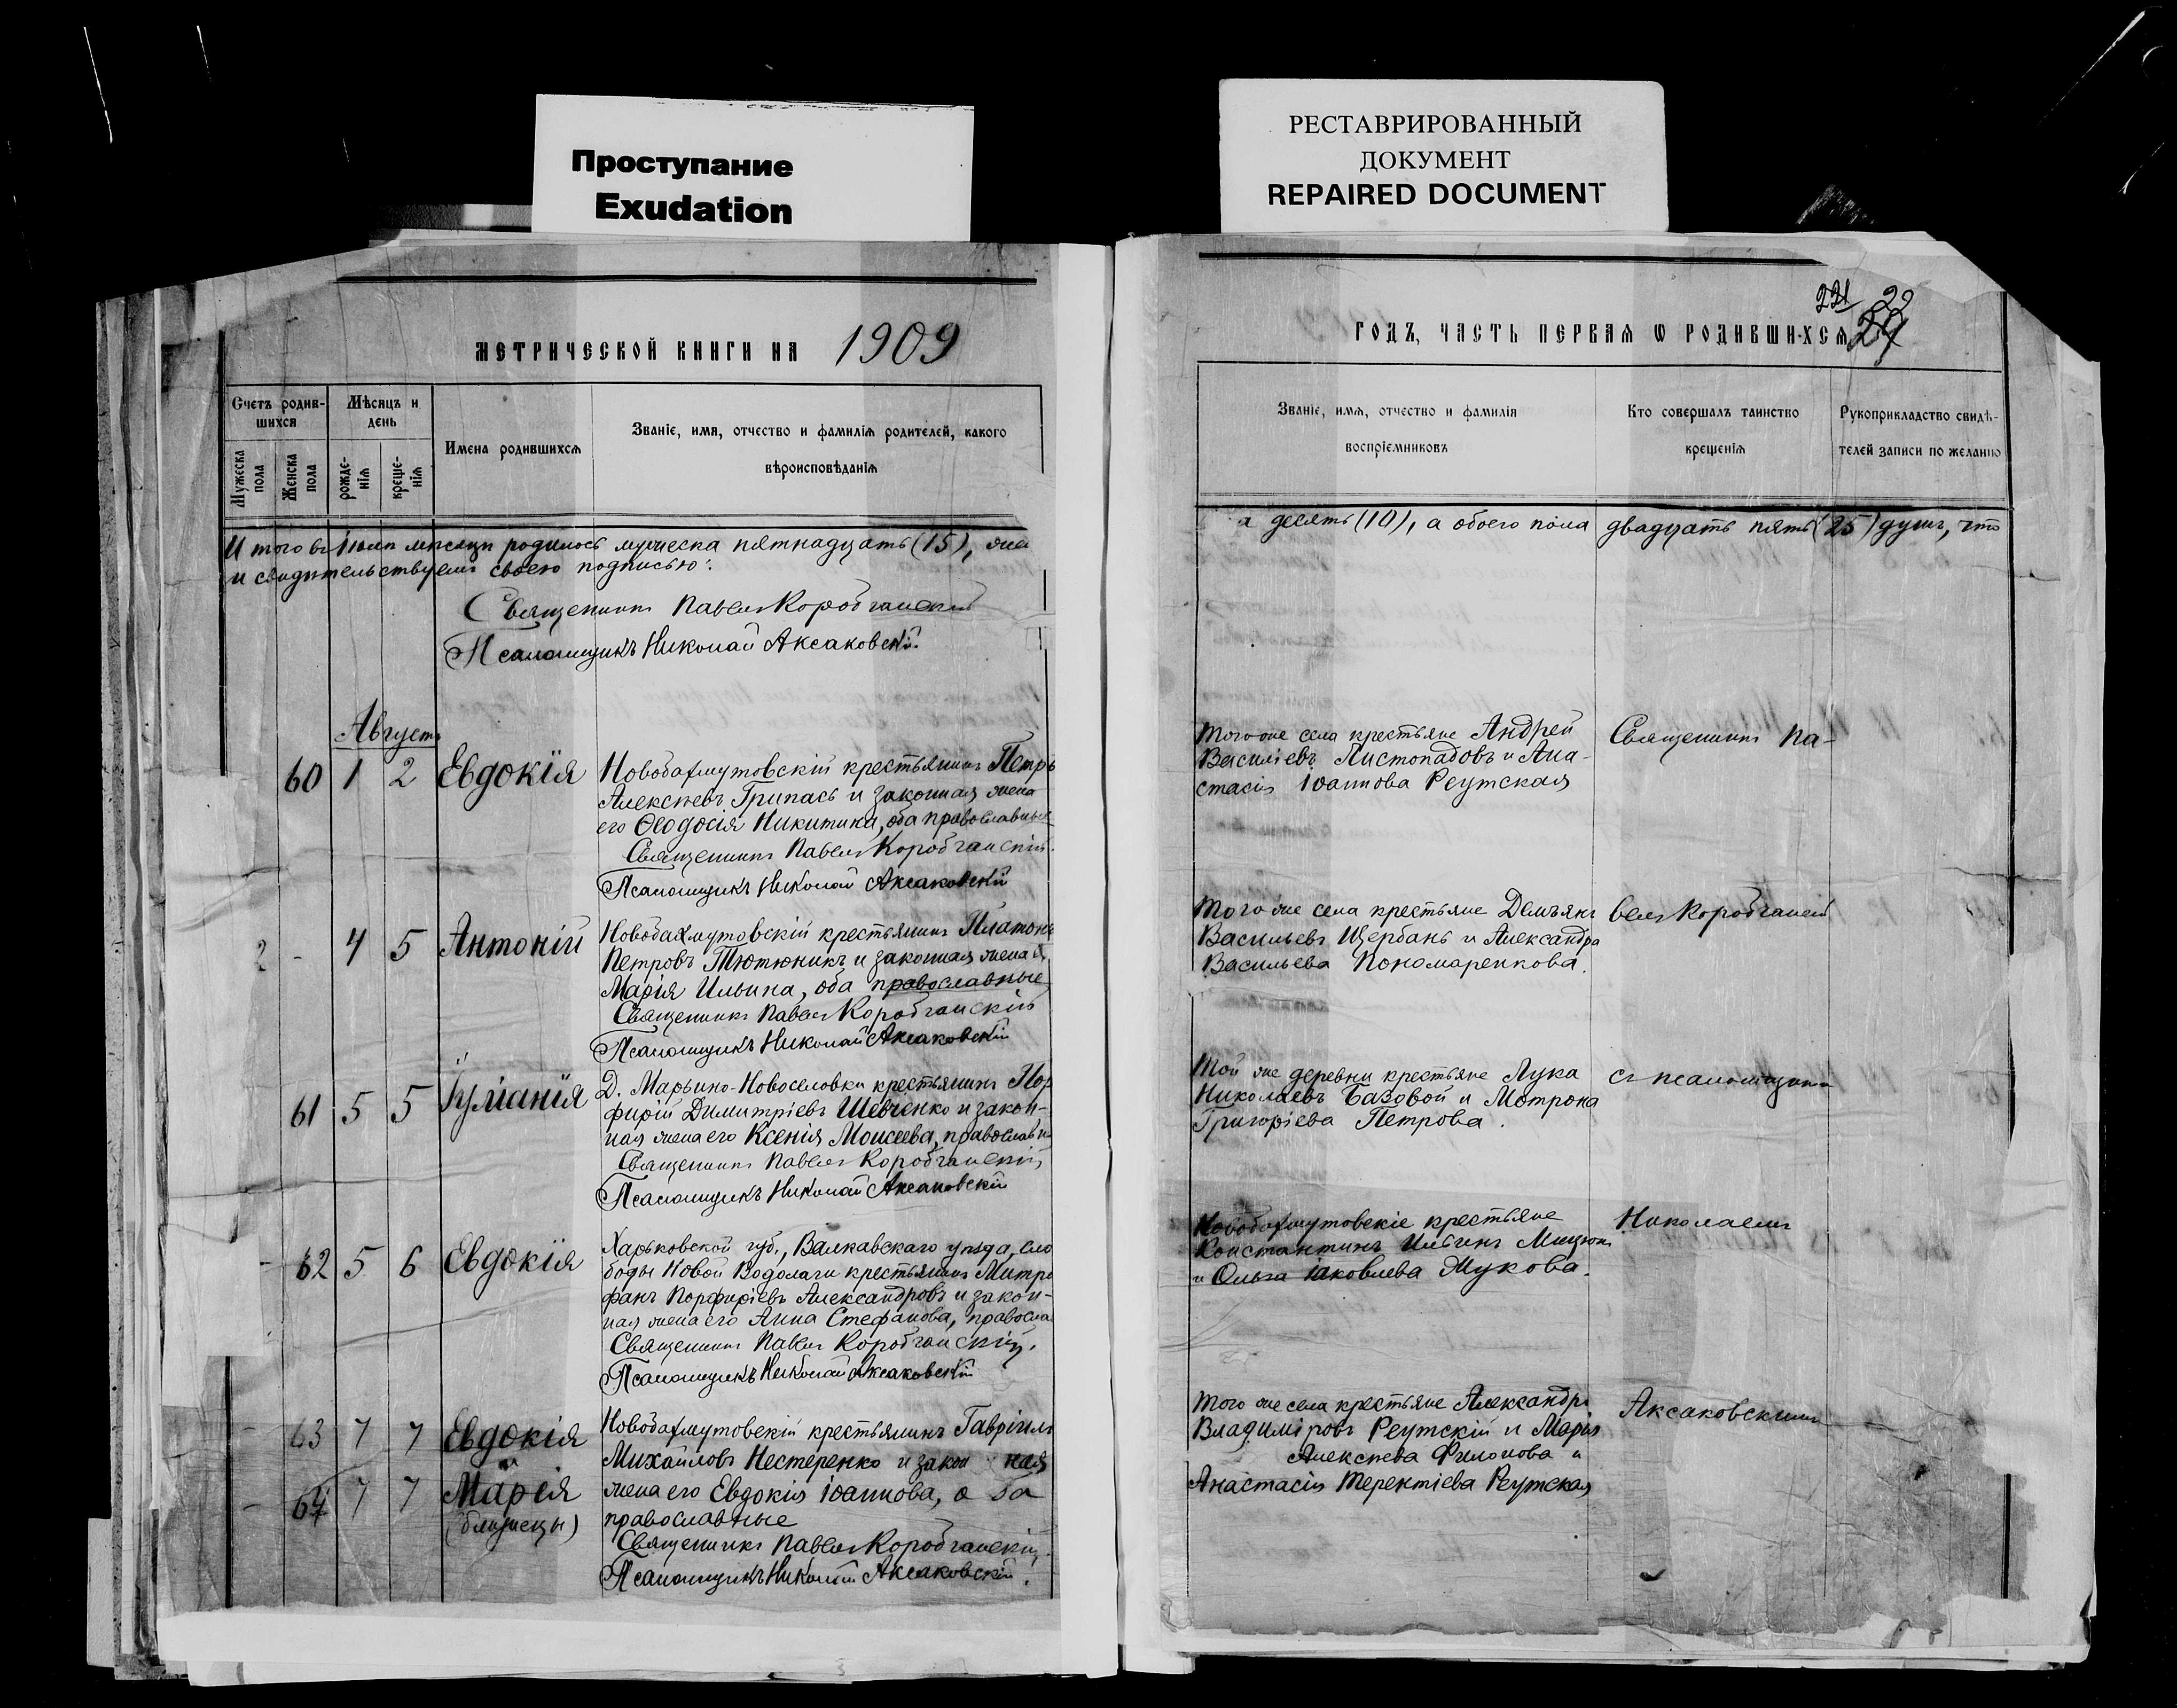 Проступание
Exudation
РЕСТАВРИРОВАННЫЙ
ДОКУМЕНТ
REPAIRED DOCUMENT
МЕТРИЧЕСКОЙ КНИГИ НА 1909
Счетъ родив-
шихся
Мѣсяцъ и
день
Мужеска
пола
Женска
пола
рожде-
нія
креще-
нія
Имена родившихся
Званіе, имя, отчество и фамилія родителей, какого
вѣроисповѣданія
Итого въ Іюлѣ мѣсяцѣ родилось мужеска пятнадцать (15), жен
и свидѣтельствуемъ своею подписью:
Священникъ Павелъ Коробчанскій
Псаломщикъ Николай Аксаковскій.
Августъ
60 1 2 Евдокія
Новобахмутовскій крестьянинъ Петръ
Алексѣевъ Грипась и законная жена
его Ѳеодосія Никитина, оба православные
Священникъ Павелъ Коробчанскій.
Псаломщикъ Николай Аксаковскій
2 - 4 5 Антоній
Новобахмутовскій крестьянинъ Платонъ
Петровъ Тютюникъ и законная жена
Марія Ильина, оба православные
Священникъ Павелъ Коробчанскій
Псаломщикъ Николай Аксаковскій
61 5 5 Іуліанія
Д. Марьино-Новоселовки крестьянинъ Пор
фирій Димитріевъ Шевченко и закон-
ная жена его Ксенія Моисеева, православн
Священникъ Павелъ Коробчанскій,
Псаломщикъ Николай Аксаковскій
- 62 5 6 Евдокія
Харьковской губ., Валкавскаго уѣзда, сло
боды Новой Водолаги крестьянинъ Митро
фанъ Порфиріевъ Александровъ и закон-
ная жена его Анна Стефанова, правосла
Священникъ Павелъ Коробчанскій.
Псаломщикъ Николай Аксаковскій
- 63 7 7 Евдокія
- 64 7 7 Марія
(близнецы)
Новобахмутовскій крестьянинъ Гавріилъ
Михайловъ Нестеренко и закон ная
жена его Евдокія Іоаннова, о ба
православные
Священникъ Павелъ Коробчанскій.
Псаломщикъ Николай Аксаковскій.
221 22
24
ГОДЪ, ЧАСТЬ ПЕРВАЯ Ѡ РОДИВШИХСЯ
Званіе, имя, отчество и фамилія
воспріемниковъ
Кто совершалъ таинство
крещенія
Рукоприкладство свидѣ-
телей записи по желанію
а десять (10), а обоего пола двадцать пять (25) душъ, что
Того же села крестьяне Андрей
Василіевъ Листопадовъ и Ана-
стасія Іоаннова Реутская
Священникъ Па-
Того же села крестьяне Демьянъ
Васильевъ Щербань и Александра
Васильева Пономаренкова.
велъ Коробчанскій
Той же деревни крестьяне Лука
Николаевъ Базовой и Мотрона
Григоріева Петрова.
съ псаломщикомъ
Новобахмутовскіе крестьяне
Константинъ Ильинъ
и Ольга Іаковлева Жукова.
Николаемъ
Того же села крестьяне Александръ
Владиміровъ Реутскій и Марія
Алексѣева Филонова и
Анастасія Терентіева Реутская
Аксаковскимъ